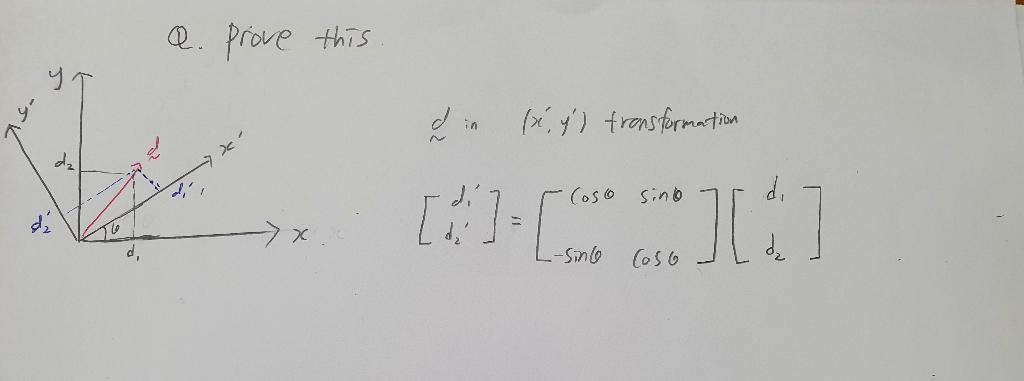 Q. Prove this
y
y'
x'
d
d₂
d₁'
d₂'
θ
x
d₁
d in (x', y') transformation
[d₁' d₂'] = [cosθ sinθ -sinθ cosθ] [d₁ d₂]